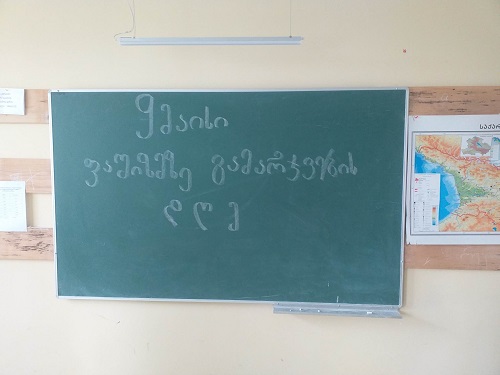 9 მაისი
ფაშიზმზე გამარჯვების
დღე
საქარ